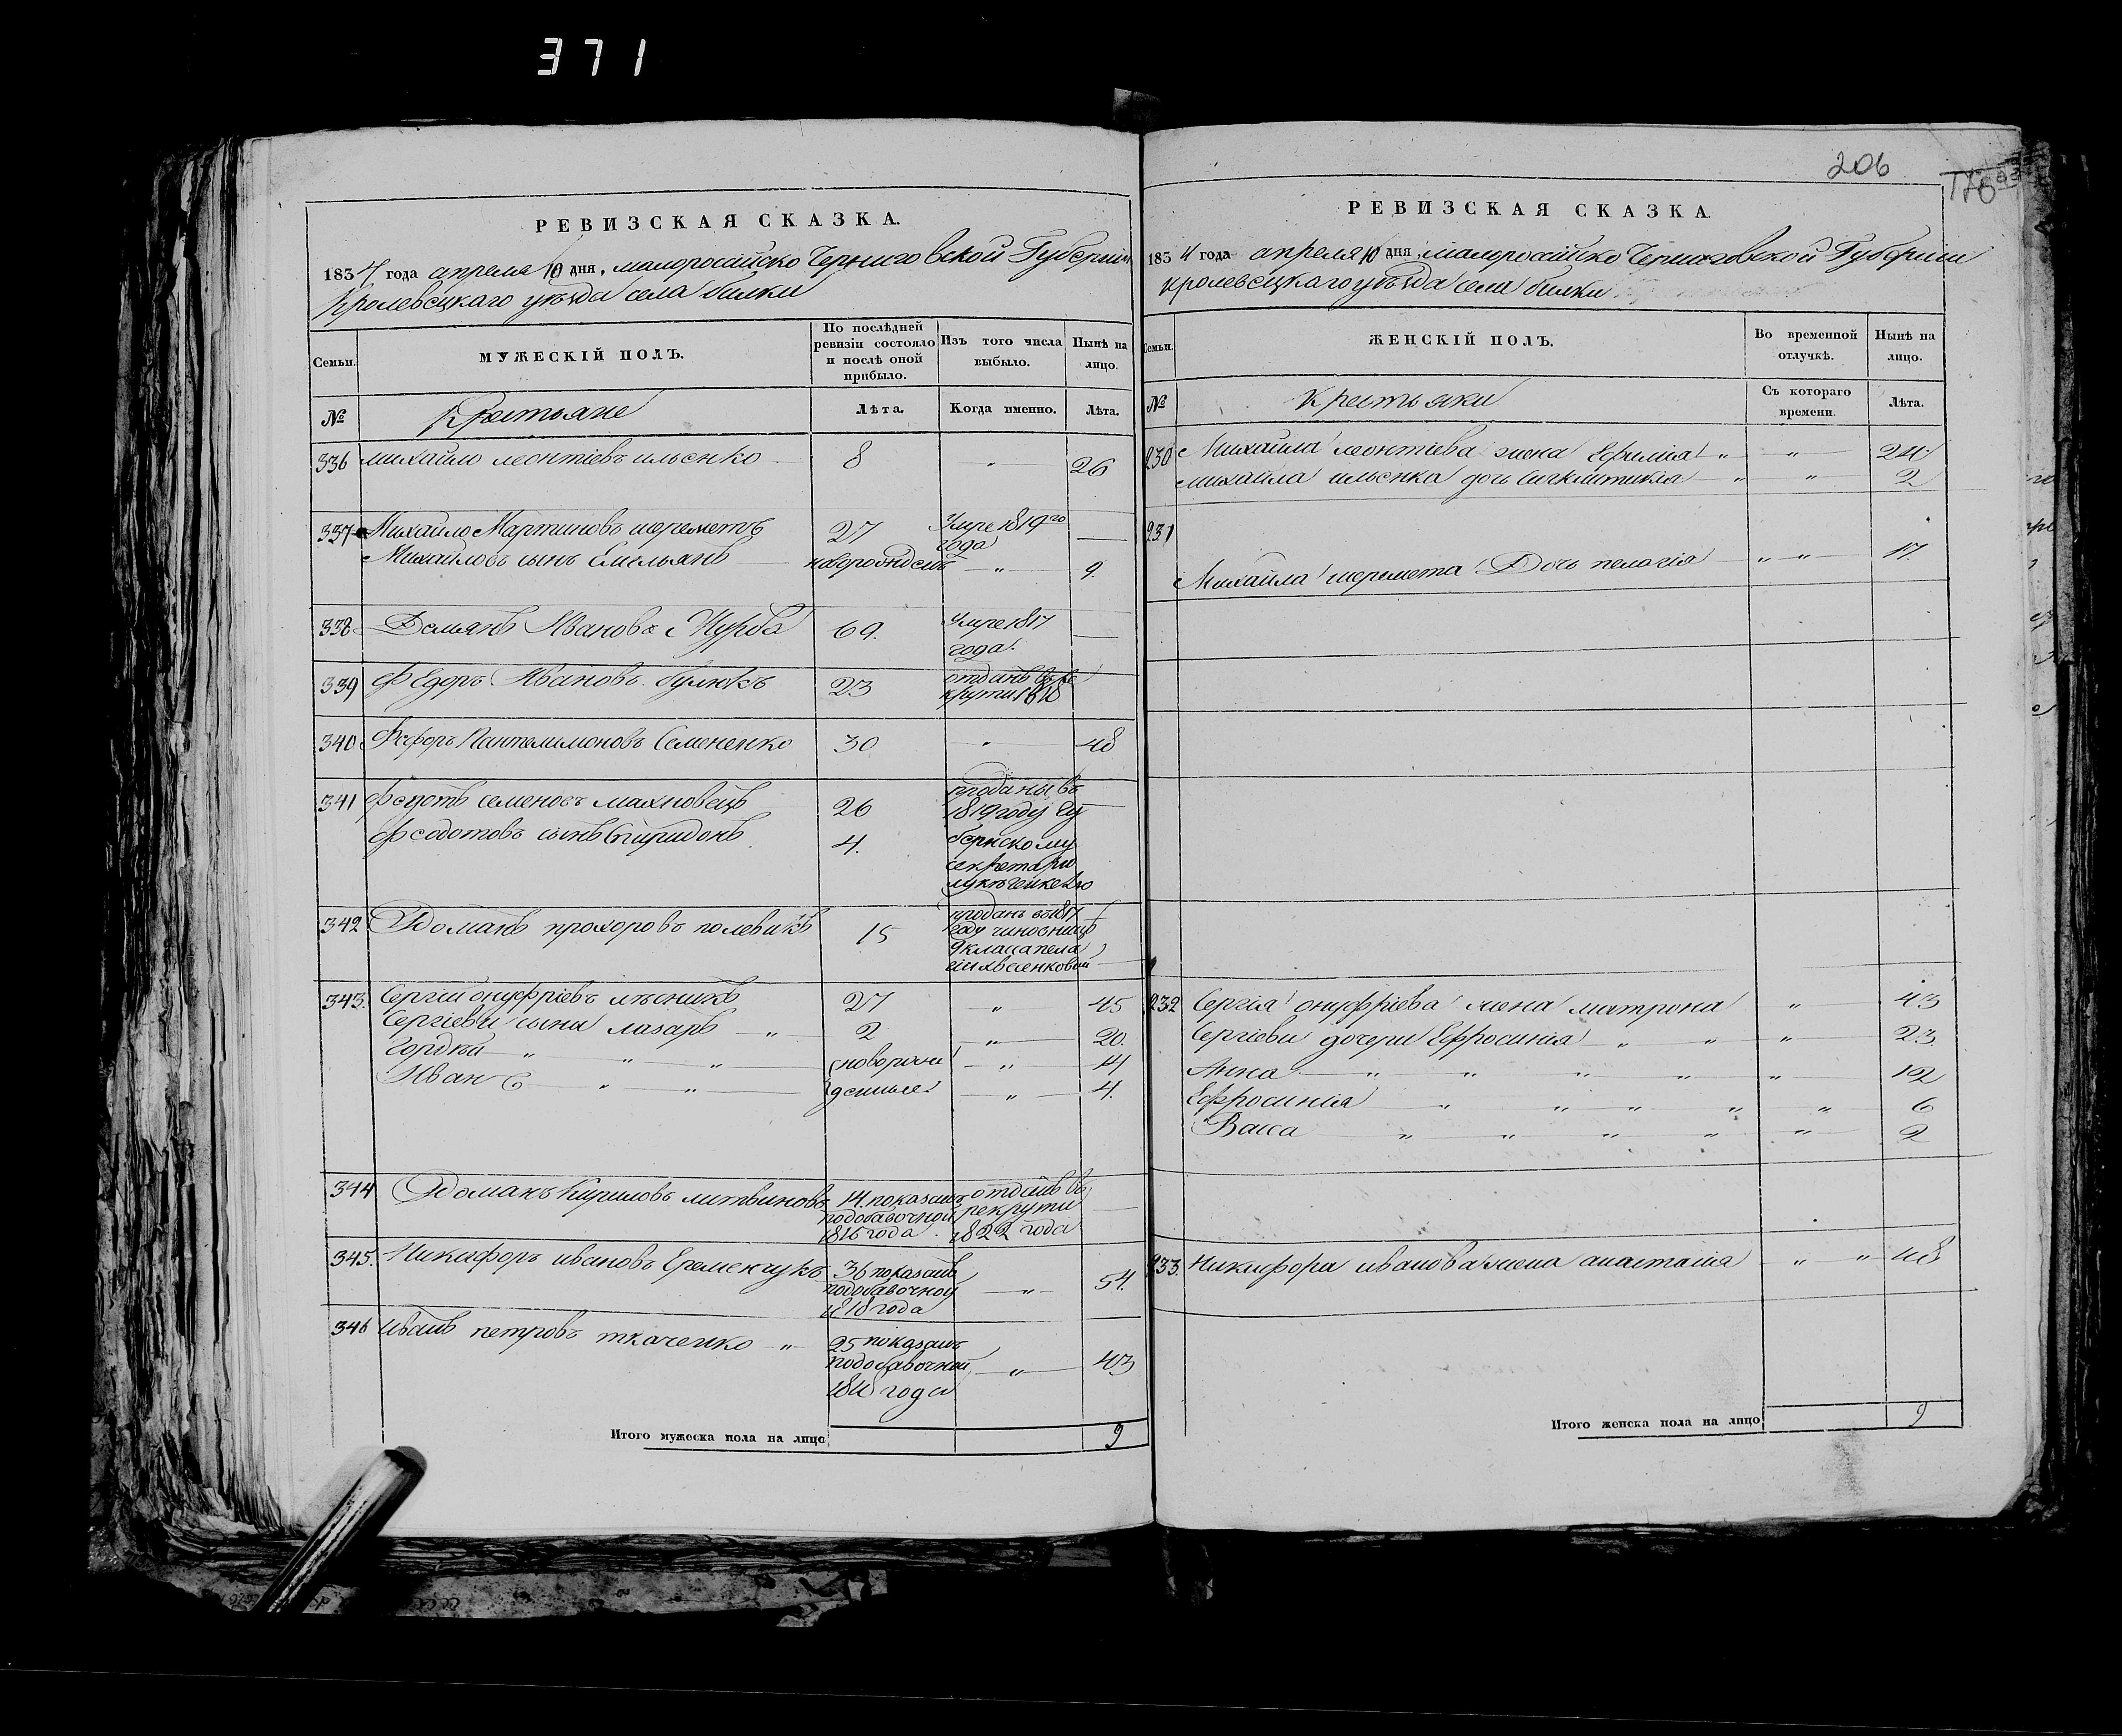 371
206
РЕВИЗСКАЯ СКАЗКА.
1834 года апреля 10 дня, малоросийско Черниговской Губернии
Кролевецкаго уезда села билки
Семьи.
МУЖЕСКІЙ ПОЛЪ.
По послѣдней ревизіи состояло и послѣ оной прибыло.
Изъ того числа выбыло.
Нынѣ на лицо.
№
Крестьяне
Лѣта.
Когда именно.
Лѣта.
336 михайло леонтіевъ ильенко 8 " 26
337 Михайло Мартиновъ шереметъ 27 Умре 1819го года
Михайловъ сынъ Емельянъ новорожденъ " 9.
338 Демянъ Ивановъ Журба 69. Умре 1817 года.
339 Федоръ Ивановъ булюкъ 23 отданъ въ ре
крути 1818
340 Пантелимоновъ Семененко 30 " 48
341 Федотъ семеновъ махновецъ 26 проданы въ
1819 году Гу
Федотовъ сынъ Спиридонъ 4. бернскому
секретарю
342 Романъ прохоровъ полевикъ 15 проданъ въ 1817
году
9 класа пела
гіи
343. Сергій онуфріевъ 27 " 45
Сергіеви сыни лазаръ " 2 " 20.
Гордѣй " " " новорож " 14
Иванъ " " денные " 4.
344 Романъ Кириловъ литвиновъ 14. показанъ отданъ въ
подобавочной рекрути
1816 года 1822 года
345. Никифоръ ивановъ Еременчукъ 36 показанъ
подобавочной " 54.
1818 года
346 иванъ петровъ ткаченко " 25 показанъ
подобавочной " 43
1818 года
Итого мужеска пола на лицо 9
РЕВИЗСКАЯ СКАЗКА.
1834 года апреля 10 дня, малоросийско Черниговской Губернии
кролевецкаго уезда села билки
Семьи.
ЖЕНСКІЙ ПОЛЪ.
Во временной отлучкѣ.
Нынѣ на лицо.
№
Крестьянки
Съ котораго времени.
Лѣта.
230 Михайла леонтіева жена Ефимія " " 24
михайла ильенка дочь " " 2
231
Михайла шеремета Дочь пелагія " " 17.
232 Сергія онуфріева жена матрона " 43
Сергіеви дочери Ефросинія " " " 23
Анна " " " " " 12
Ефросинія " " " " " 6
Васса " " " " " 2
233. Никифора иванова жена анастасія " " 48
Итого женска пола на лицо 9